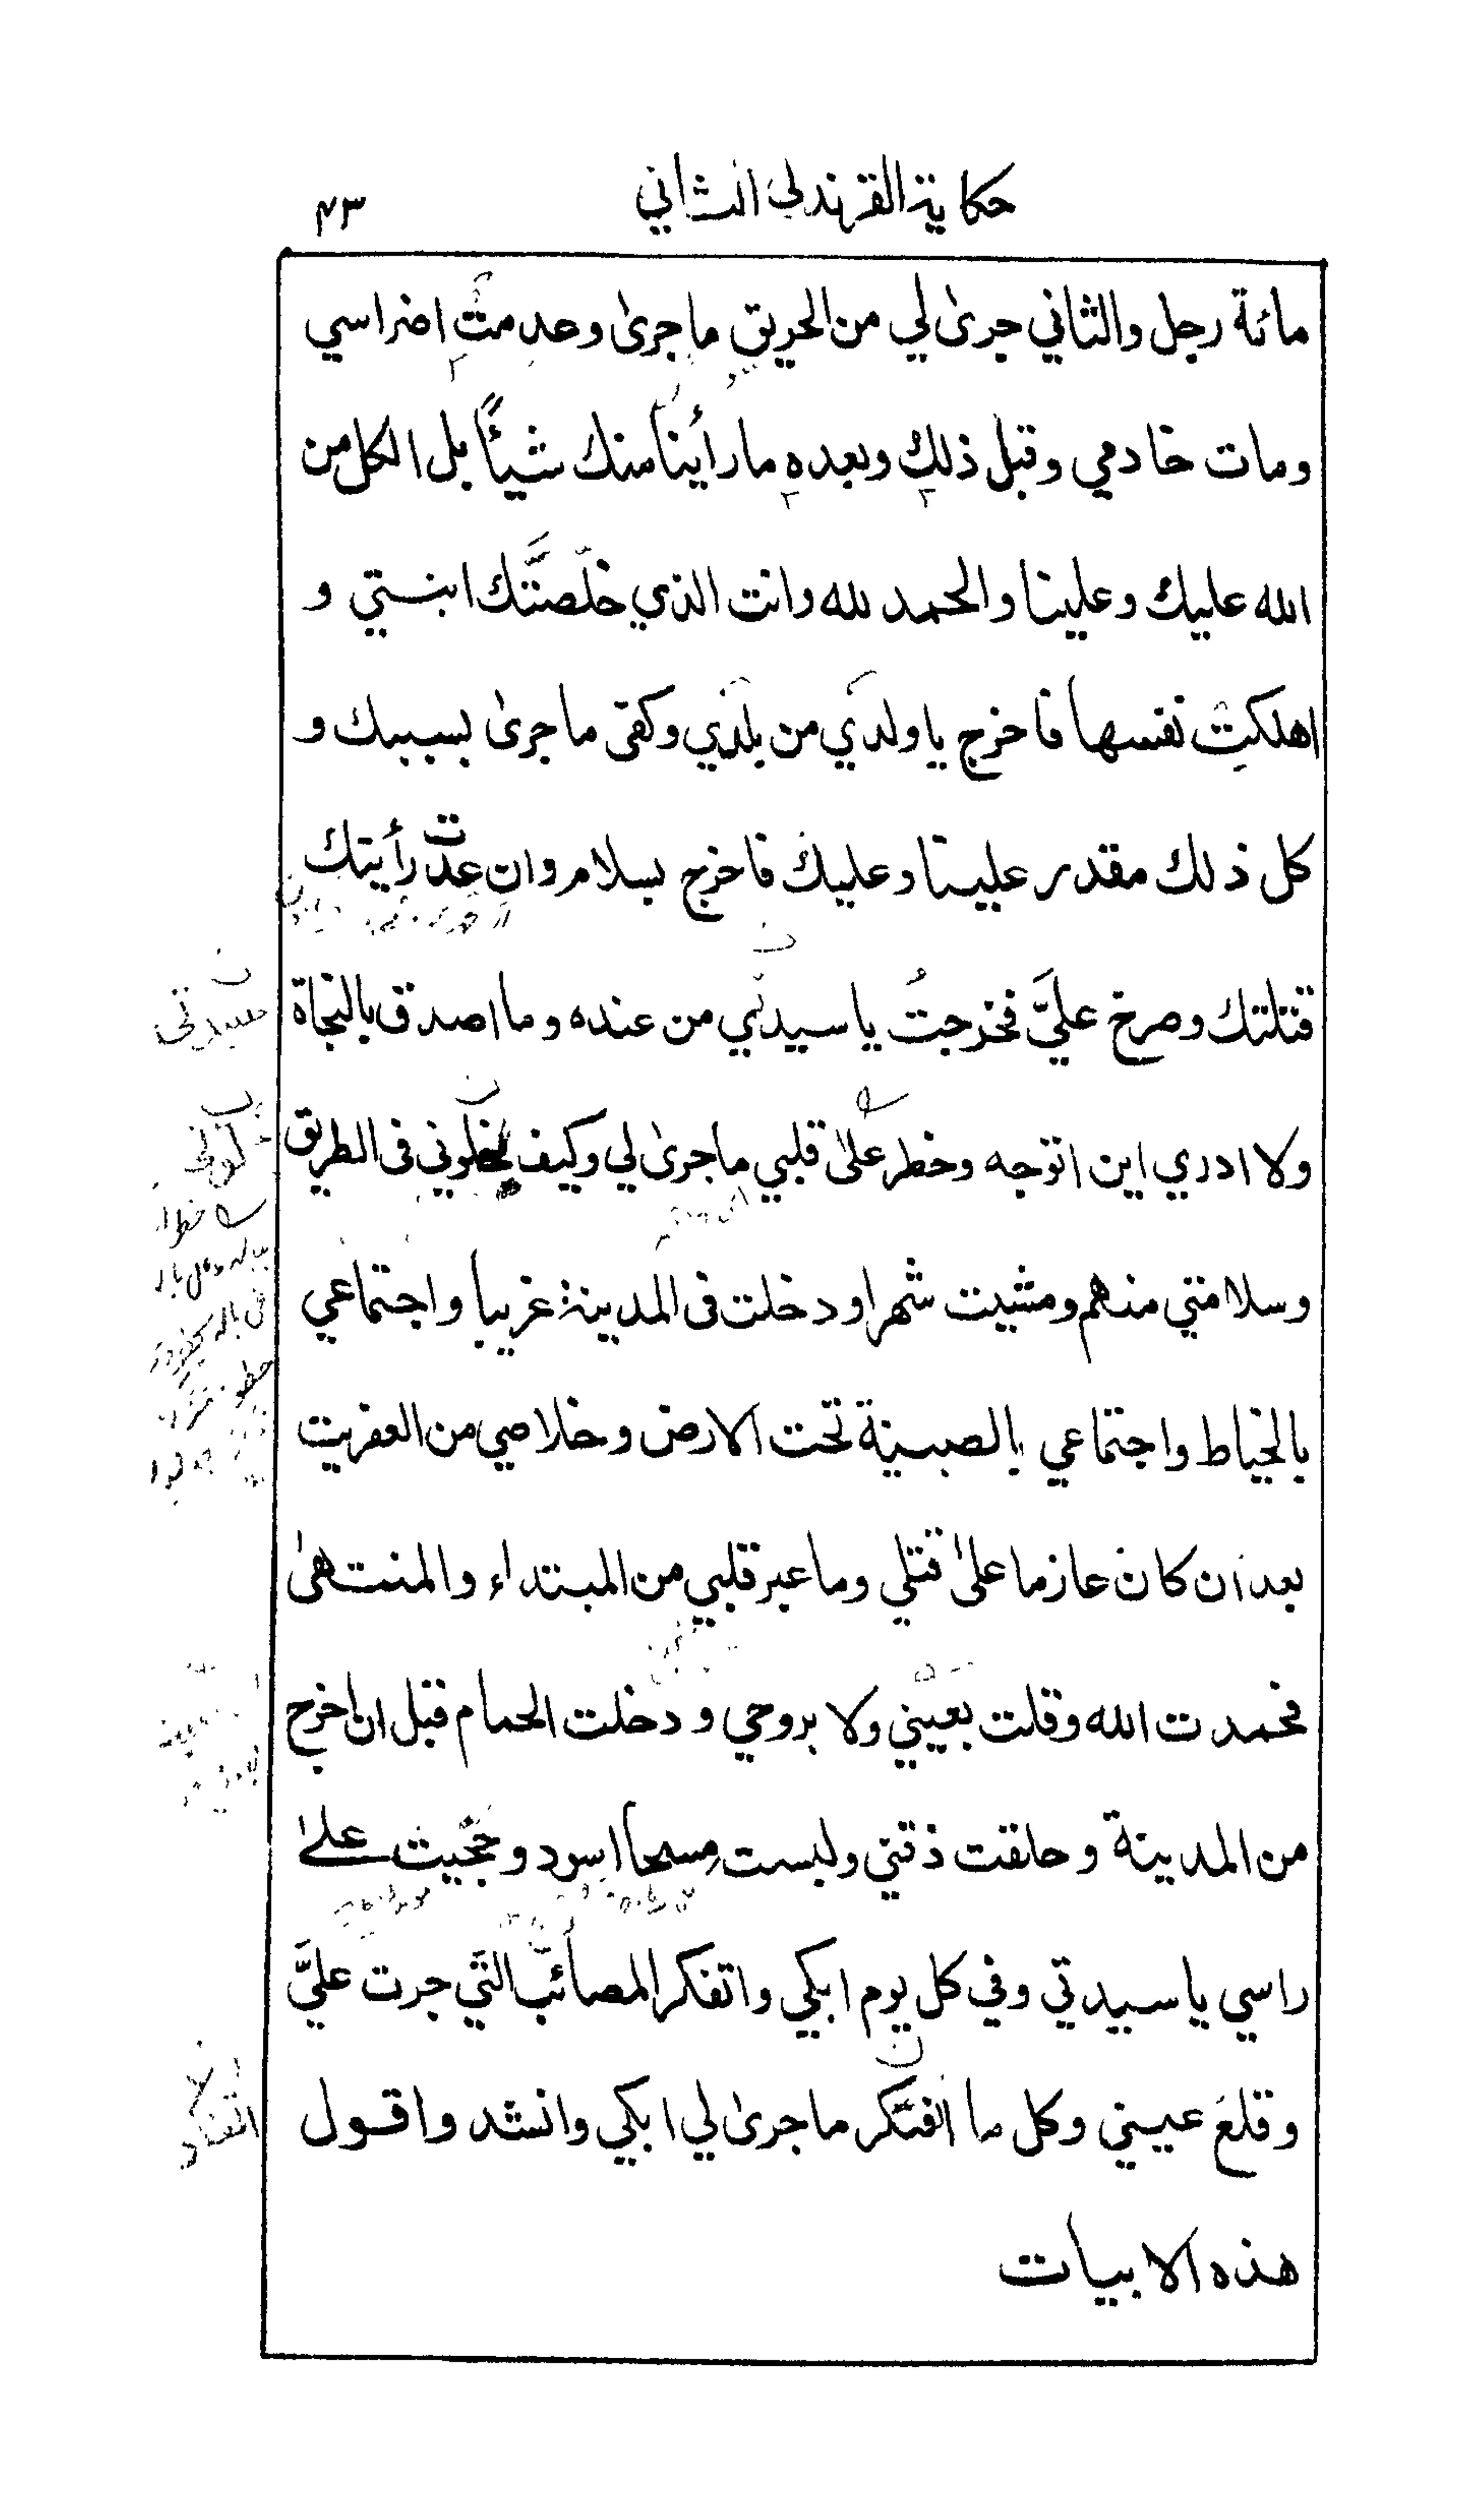 حكاية القرندلي الثاني ٤٣
مائة رجل والثاني جرىٰ لي من الحريق ماجرىٰ وعدمتُ اضراسي
ومات خادمي وقبل ذلك وبعده مارأينا منك شيئاً بل الكل من
الله عليك وعلينا والحمد لله وانت الذي خلّصتَّك ابنتي و
اهلكت نفسها فاخرج ياولدي من بلدي وكفى ماجرىٰ بسببك و
كل ذلك مقدر علينا وعليك فاخرج بسلام وان عدتّ رأيتك
قتلتك وصرخ عليَّ فخرجتُ ياسيدتي من عنده وما اصدق بالنجاة
ولا ادري اين اتوجه وخطر علىٰ قلبي ماجرىٰ لي وكيف يخلوني فى الطريق
وسلامتي منهم ومشيت شهرا ودخلت فى المدينة غريبا واجتماعي
بالخياط واجتماعي بالصبية تحت الارض وخلاصي من العفريت
بعد ان كان عازما علىٰ قتلي وماعبر قلبي من المبتداء والمنتهىٰ
فحمدت الله وقلت بعيني ولا بروحي ودخلت الحمام قبل ان اخرج
من المدينة وحلقت ذقني ولبست مسحا اسود وحجيت علىٰ
راسي ياسيدتي وفي كل يوم ابكي واتفكر المصائب التي جرت عليَّ
وقلعَ عيني وكل ما اتفكر ماجرىٰ لي ابكي وانشد واقول
هذه الابيات
سيدتي